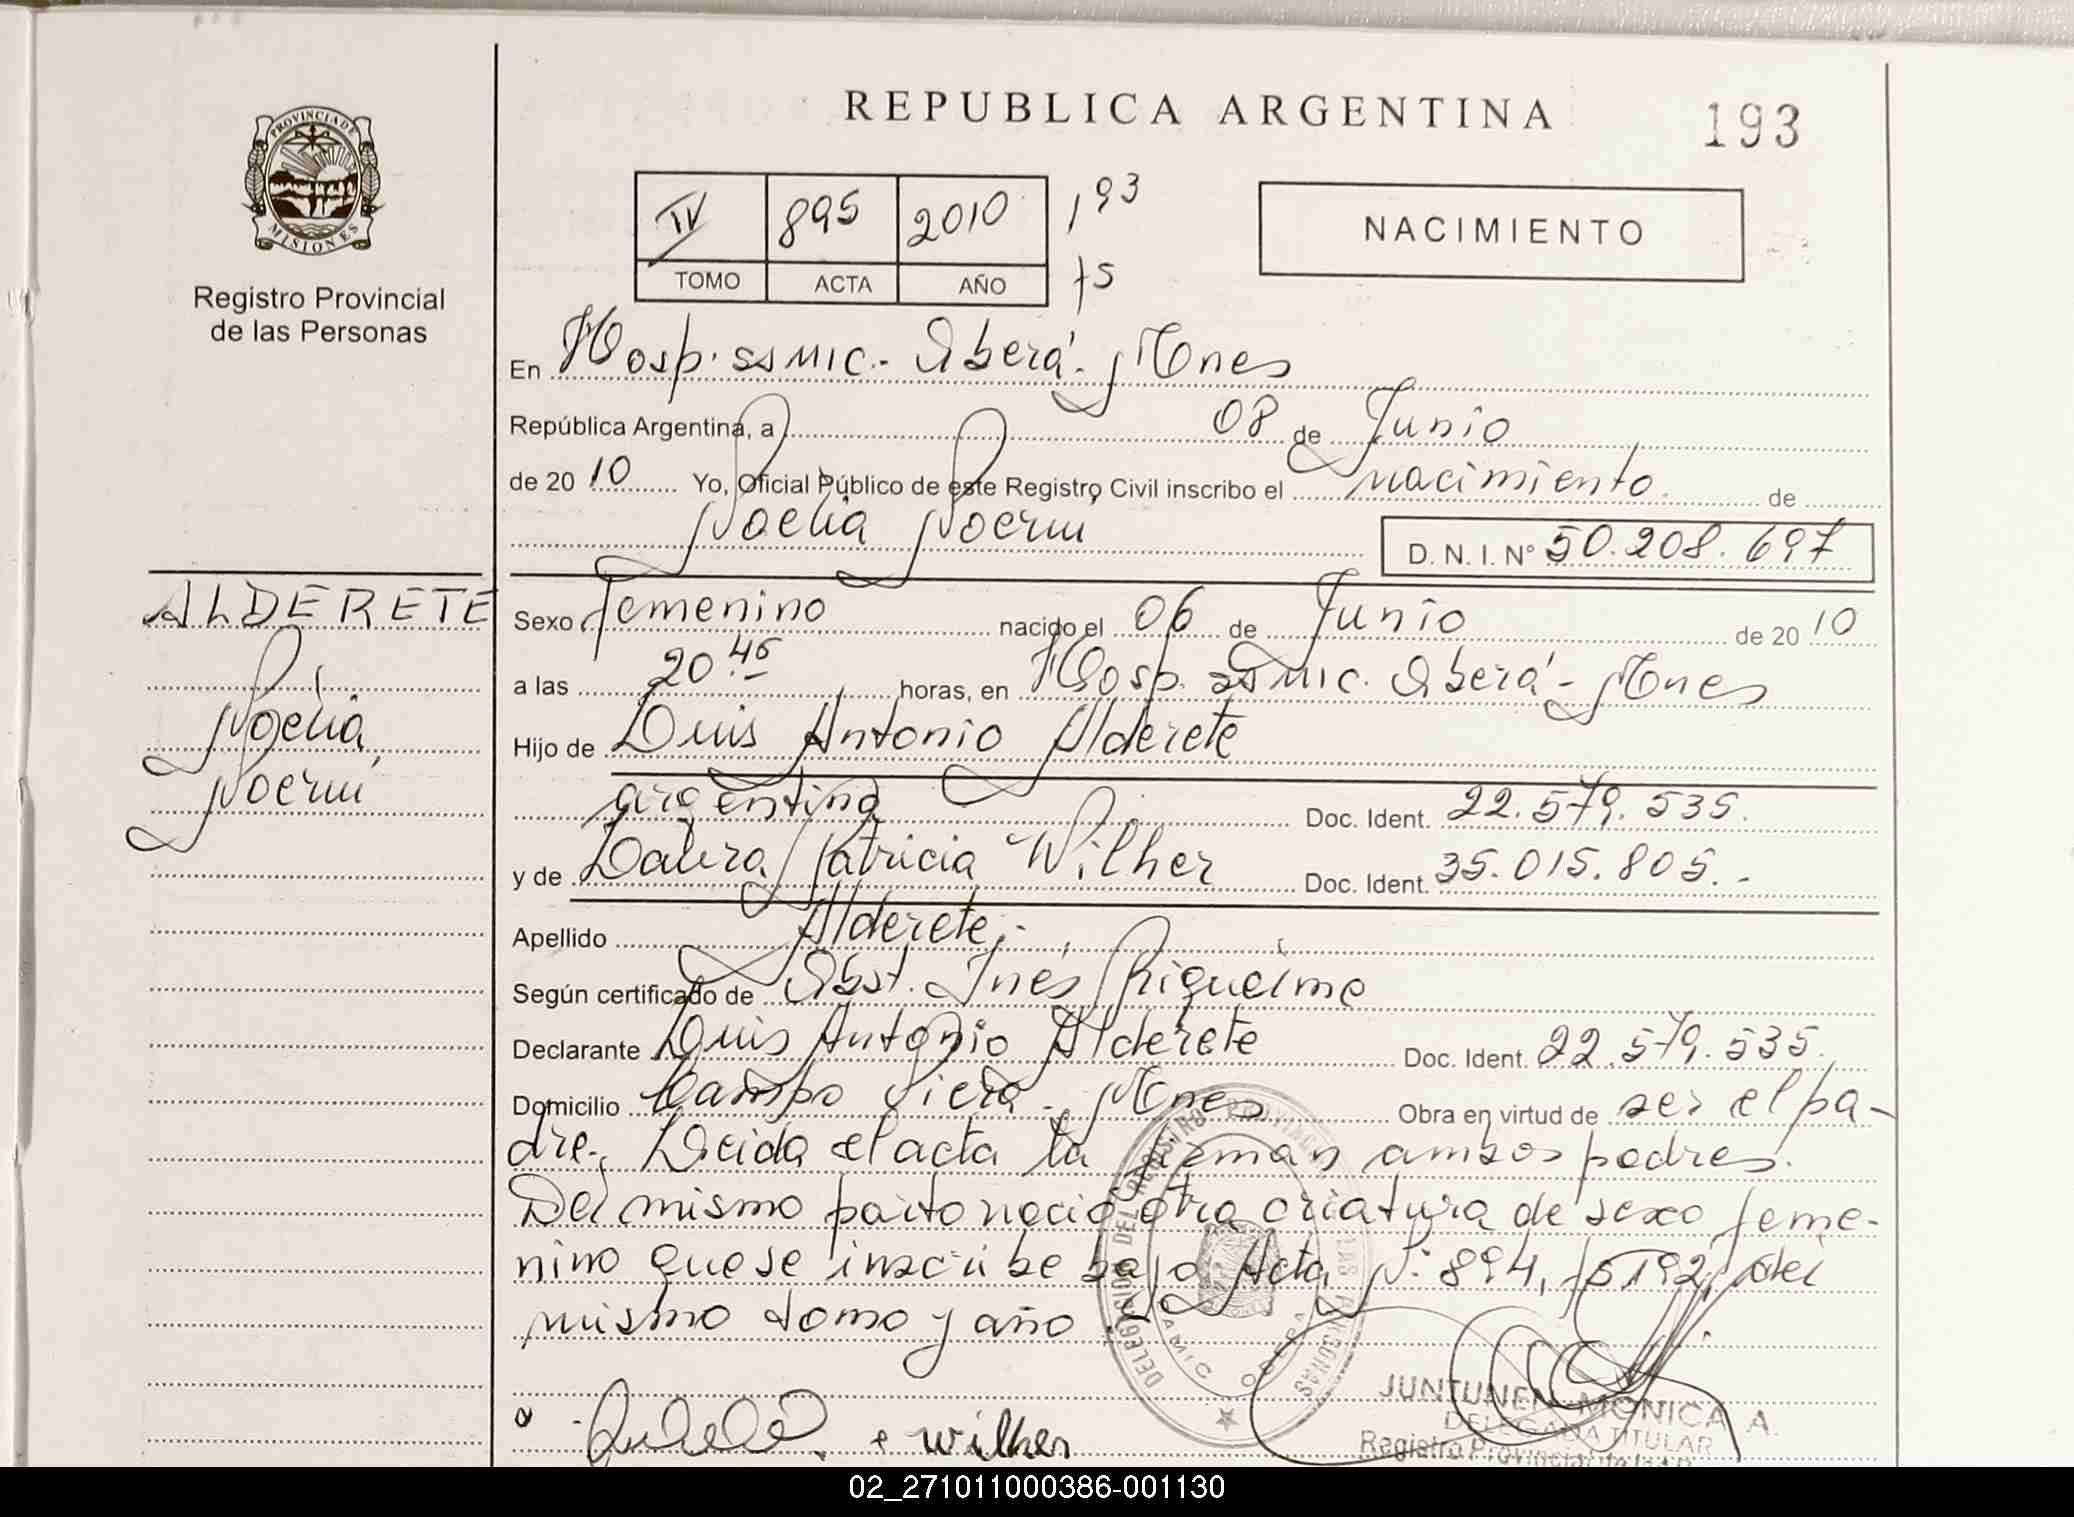 REPUBLICA ARGENTINA
193
PROVINCIA DE
MISIONES
Registro Provincial
de las Personas
IV 895 2010 193
TOMO ACTA AÑO f5
NACIMIENTO
En Hosp. SS MIC.- Oberá - Mnes
República Argentina, a 08 de Junio
de 2010 Yo, Oficial Público de este Registro Civil inscribo el nacimiento de
Noelia Noemi D. N. I. Nº 50.208.697
ALDERETE
Noelia
Noemi
Sexo femenino nacido el 06 de Junio de 2010
a las 20 45 horas, en Hosp. SS MIC. Oberá - Mnes
Hijo de Luis Antonio Alderete
argentina Doc. Ident. 22.579.535.
y de Laura Patricia Wilher Doc. Ident. 35.015.805.-
Apellido Alderete.-
Según certificado de Obst. Inés Riquelme
Declarante Luis Antonio Alderete Doc. Ident. 22.579.535.
Domicilio Campo Viera - Mnes Obra en virtud de ser el pa-
dre. Leida el acta la firman ambos padres.
Del mismo parto nació otra criatura de sexo feme-
nino que se inscribe bajo Acta N: 894, f 192, del
mismo tomo y año
wilher
DELEGACION DEL REGISTRO PROVINCIAL DE LAS PERSONAS
SAMIC OBERA
JUNTUNEN MONICA A.
DELEGADA TITULAR
Registro Provincial de las P
02_271011000386-001130